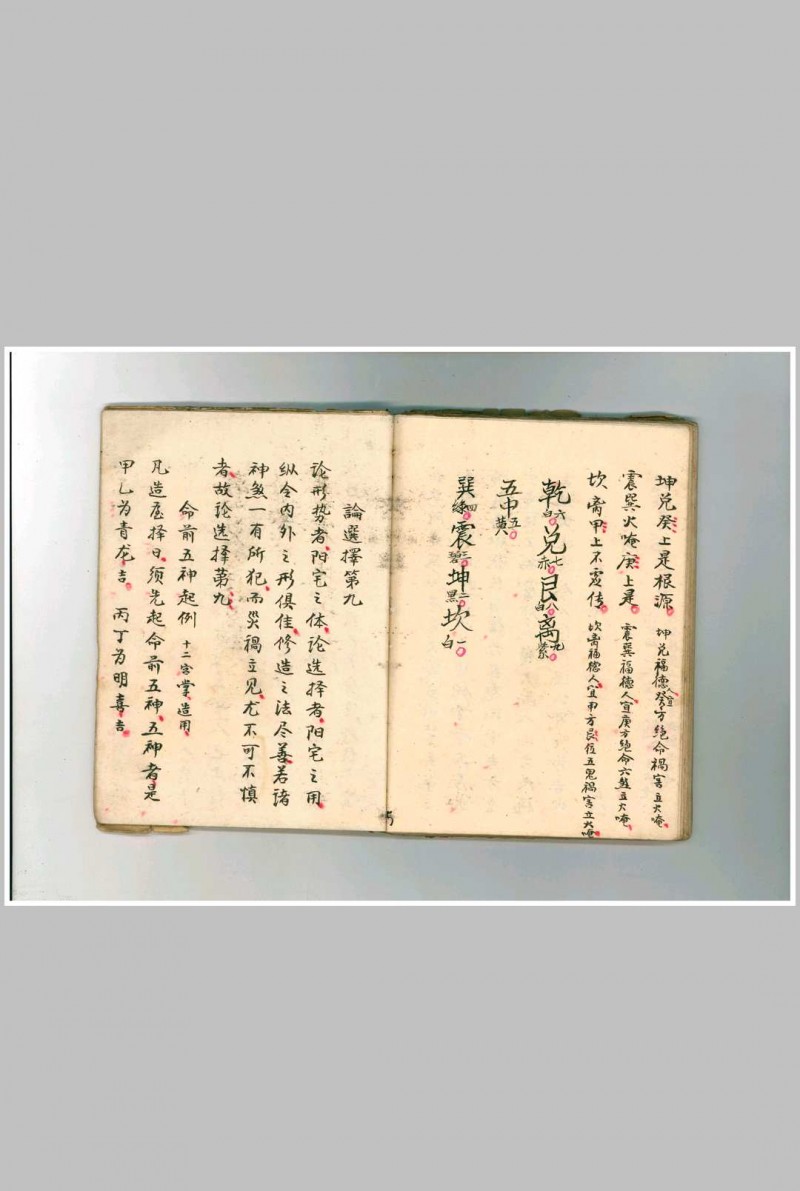 坤兑癸上是根源 坤兑福德人宜癸方绝命祸害立火唵
震巽火唵庚上是 震巽福德人宜庚方绝命六煞立火唵
坎离甲上不虚传 坎离福德人宜甲方艮位五鬼祸害立火唵
乾六白 兑七赤 艮八白 离九紫
五中五黄
巽四绿 震三碧 坤二黑 坎一白
論選擇第九
论形势者阳宅之体论选择者阳宅之用
纵令内外之形俱佳修造之法尽善若诸
神煞一有所犯而災禍立见尤不可不慎
者故论选择第九
命前五神起例 十二字掌造用
凡造屋择日须先起命前五神五神者是
甲乙为青龙吉 丙丁为明喜吉